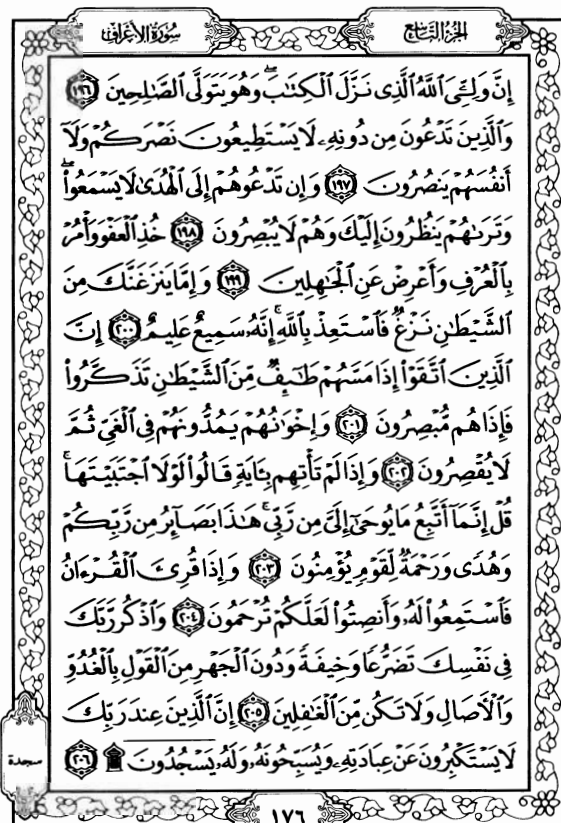 سُورَةُ الأَعْرَافِ
الجُزْءُ التَّاسِعُ
إِنَّ وَلِـِّۧيَ ٱللَّهُ ٱلَّذِي نَزَّلَ ٱلْكِتَٰبَۖ وَهُوَ يَتَوَلَّى ٱلصَّٰلِحِينَ ١٩٦
وَٱلَّذِينَ تَدْعُونَ مِن دُونِهِۦ لَا يَسْتَطِيعُونَ نَصْرَكُمْ وَلَآ
أَنفُسَهُمْ يَنصُرُونَ ١٩٧ وَإِن تَدْعُوهُمْ إِلَى ٱلْهُدَىٰ لَا يَسْمَعُوا۟ۖ
وَتَرَىٰهُمْ يَنظُرُونَ إِلَيْكَ وَهُمْ لَا يُبْصِرُونَ ١٩٨ خُذِ ٱلْعَفْوَ وَأْمُرْ
بِٱلْعُرْفِ وَأَعْرِضْ عَنِ ٱلْجَٰهِلِينَ ١٩٩ وَإِمَّا يَنزَغَنَّكَ مِنَ
ٱلشَّيْطَٰنِ نَزْغٌ فَٱسْتَعِذْ بِٱللَّهِۚ إِنَّهُۥ سَمِيعٌ عَلِيمٌ ٢٠٠ إِنَّ
ٱلَّذِينَ ٱتَّقَوْا۟ إِذَا مَسَّهُمْ طَٰٓئِفٌ مِّنَ ٱلشَّيْطَٰنِ تَذَكَّرُوا۟
فَإِذَا هُم مُّبْصِرُونَ ٢٠١ وَإِخْوَٰنُهُمْ يَمُدُّونَهُمْ فِي ٱلْغَيِّ ثُمَّ
لَا يُقْصِرُونَ ٢٠٢ وَإِذَا لَمْ تَأْتِهِم بِـَٔايَةٍ قَالُوا۟ لَوْلَا ٱجْتَبَيْتَهَاۚ
قُلْ إِنَّمَآ أَتَّبِعُ مَا يُوحَىٰٓ إِلَيَّ مِن رَّبِّيۚ هَٰذَا بَصَآئِرُ مِن رَّبِّكُمْ
وَهُدًى وَرَحْمَةٌ لِّقَوْمٍ يُؤْمِنُونَ ٢٠٣ وَإِذَا قُرِئَ ٱلْقُرْءَانُ
فَٱسْتَمِعُوا۟ لَهُۥ وَأَنصِتُوا۟ لَعَلَّكُمْ تُرْحَمُونَ ٢٠٤ وَٱذْكُر رَّبَّكَ
فِي نَفْسِكَ تَضَرُّعًا وَخِيفَةً وَدُونَ ٱلْجَهْرِ مِنَ ٱلْقَوْلِ بِٱلْغُدُوِّ
وَٱلْءَاصَالِ وَلَا تَكُن مِّنَ ٱلْغَٰفِلِينَ ٢٠٥ إِنَّ ٱلَّذِينَ عِندَ رَبِّكَ
لَا يَسْتَكْبِرُونَ عَنْ عِبَادَتِهِۦ وَيُسَبِّحُونَهُۥ وَلَهُۥ يَسْجُدُونَ ۩ ٢٠٦
سجدة
١٧٦